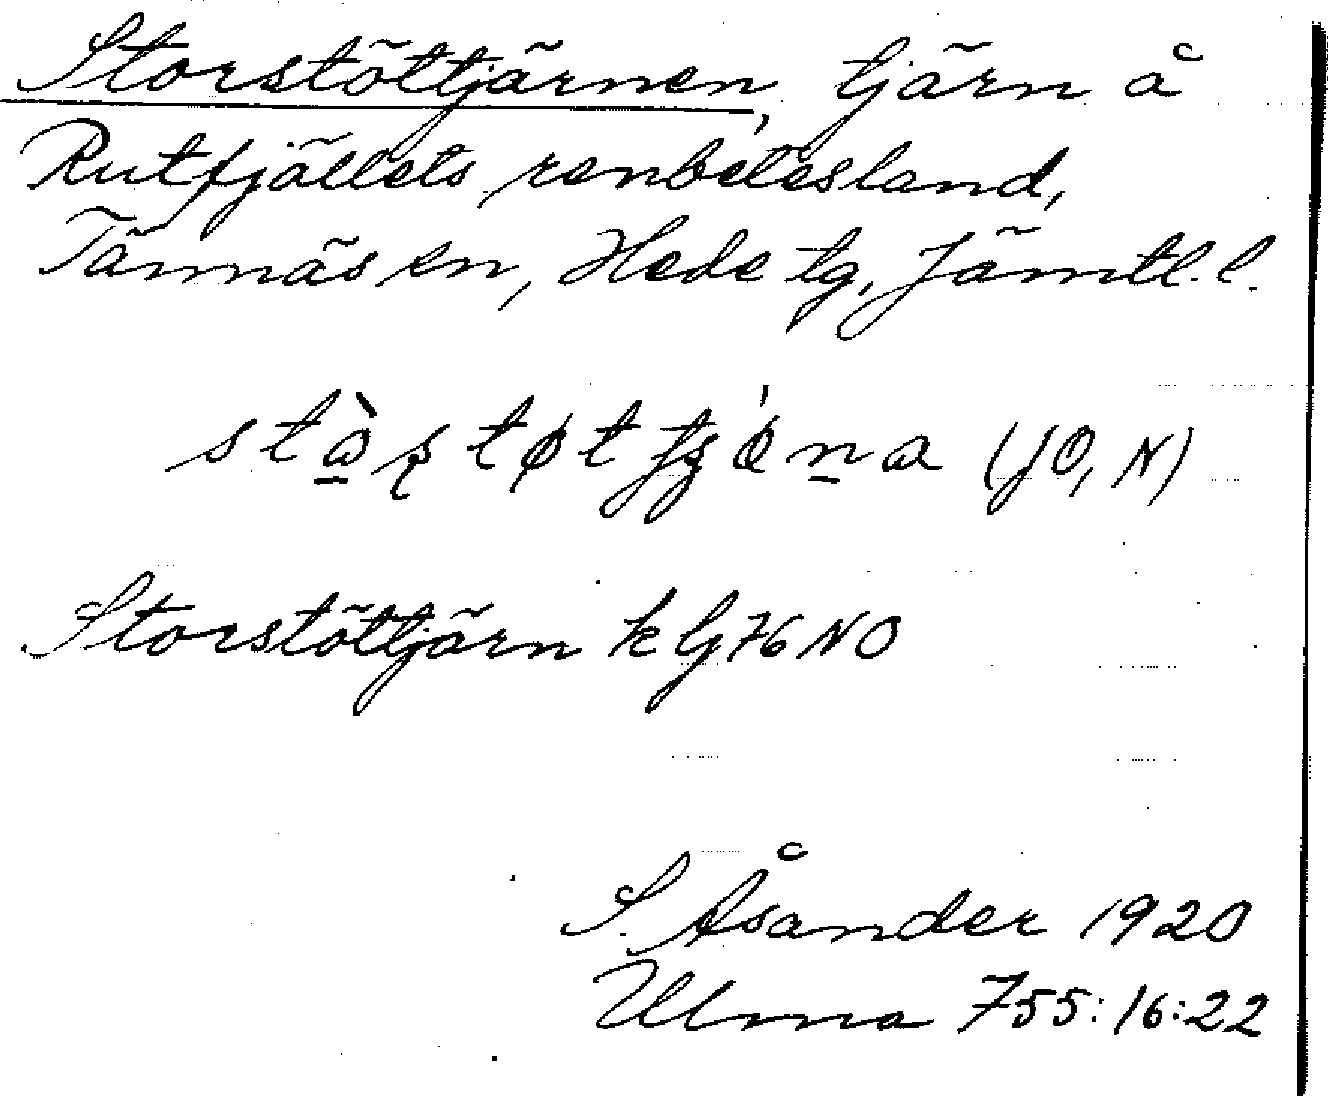 Storstöttjärnen, tjärn å
Rutfjällets renbetesland,
Tännäs sn, Hede tg, Jämtl. l.
(JO, N)
Storstöttjärn k G 76 NO
S. Åsander 1920
Ulma 755:16:22